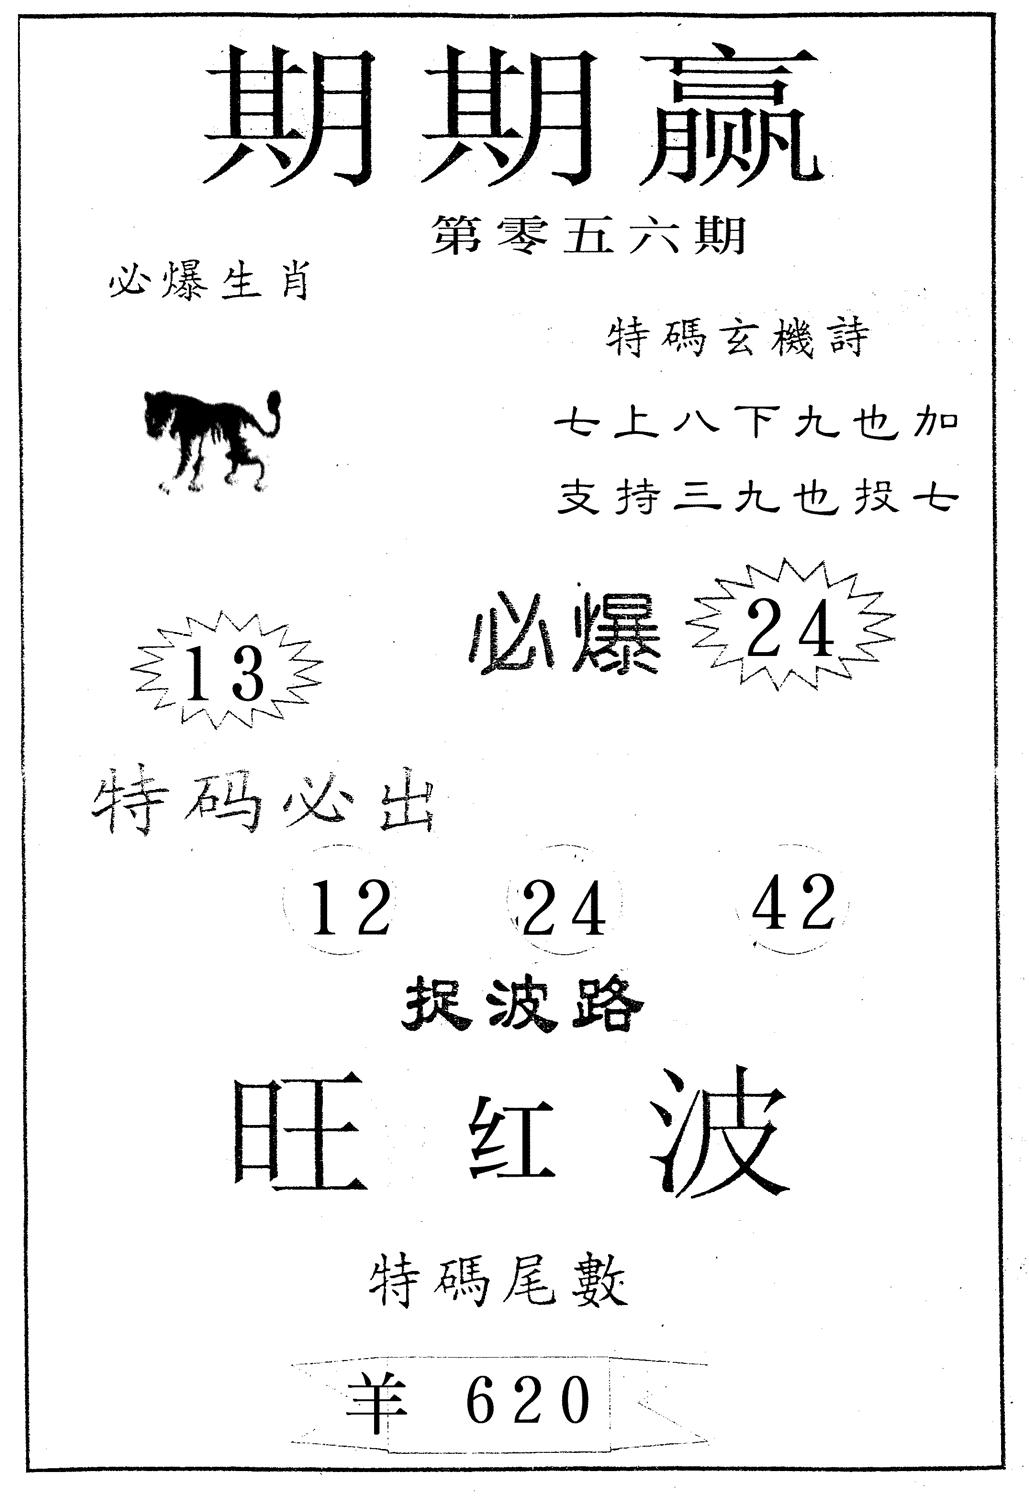 期期赢
第零五六期
必爆生肖
特碼玄機詩
七上八下九也加
支持三九也投七
必爆 24
13
特码必出
12 24 42
捉波路
旺红波
特碼尾數
羊 620